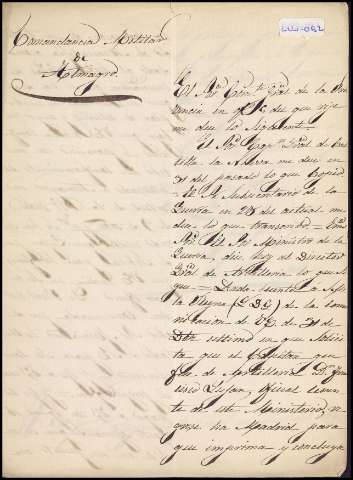 Comandancia Militar
de
Almagro.
El Sor. Comte. Gral de la Pro
vincia en of. del que rije
me dice lo siguiente
El Sor. Capn. Gral de Cas
tilla la Nueva me dice en
31 del pasado lo que copio
El Sr. Subsecretario de la
Guerra en 28 del actual me
dice lo que transcribo = Exmo
Sor. El Sr. Ministro de la
Guerra, dice hoy al Director
Gral de Artilleria lo que si
gue = Dada cuenta a S. M.
la Reyna (Q. D. G.) de la comu
nicacion de V.E. de 31 de
Dbre ultimo en que solicita
que el Capitan que
fue de Artilleria Dn. Fran
cisco Lujan, oficial
de este Ministerio,
ha Madrid para
que imprima y concluya